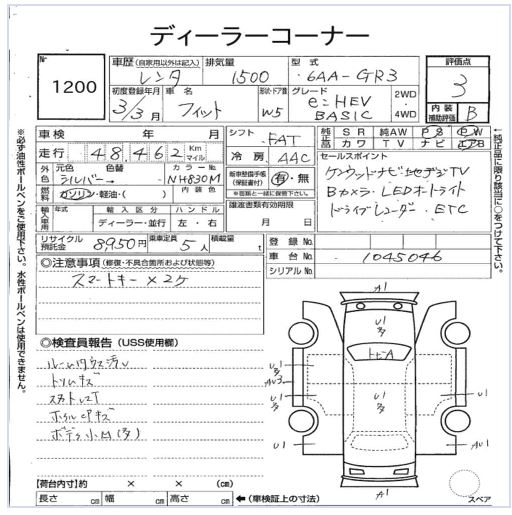 ディーラーコーナー
No 1200
車歴（自家用以外は記入） 排気量 型式 評価点
レンタ 1500 6AA-GR3 3
初度登録年月 車名 形状・ドア数 グレード 2WD・4WD 内装補助評価
3/3月 フィット W5 e:HEV BASIC B
車検 年 月 シフト FAT 純正品 SR 純AW PS PW
走行 48,462 Km マイル 冷房 AAC カワ TV ナビ エアB
外色 元色 色替 カラーNo 内装色 新車整備手帳（保証書付） 有・無 セールスポイント
シルバー → NH830M ※書類と一緒に保管下さい。 ケンウッドナビ TV
燃料 ガソリン・軽油・（ ） 譲渡書類有効期限 Bカメラ LEDオートライト
輸入車用 年式 輸入区分 ハンドル 月 日 ドライブレコーダー ETC
ディーラー・並行 左・右
リサイクル預託金 8950円 乗車定員 5人 積載量 t
登録No.
車台No. 1045046
シリアルNo.
◎注意事項（修復・不具合箇所および状態等）
スマートキー×2ケ
◎検査員報告（USS使用欄）
ルームウス汚レ
トリムキズ
ホイルCPキズ
ボデー小凹（多）
A1
U1（多）
トビA
U1（多）
U1
AU3
U1
U1
U1
U1
AU1
A1
スペア
【荷台内寸】約 × × （cm）
長さ cm 幅 cm 高さ cm ←（車検証上の寸法）
※必ず油性ボールペンをご使用下さい。水性ボールペンは使用できません。
←純正品に限り該当に○をつけて下さい。